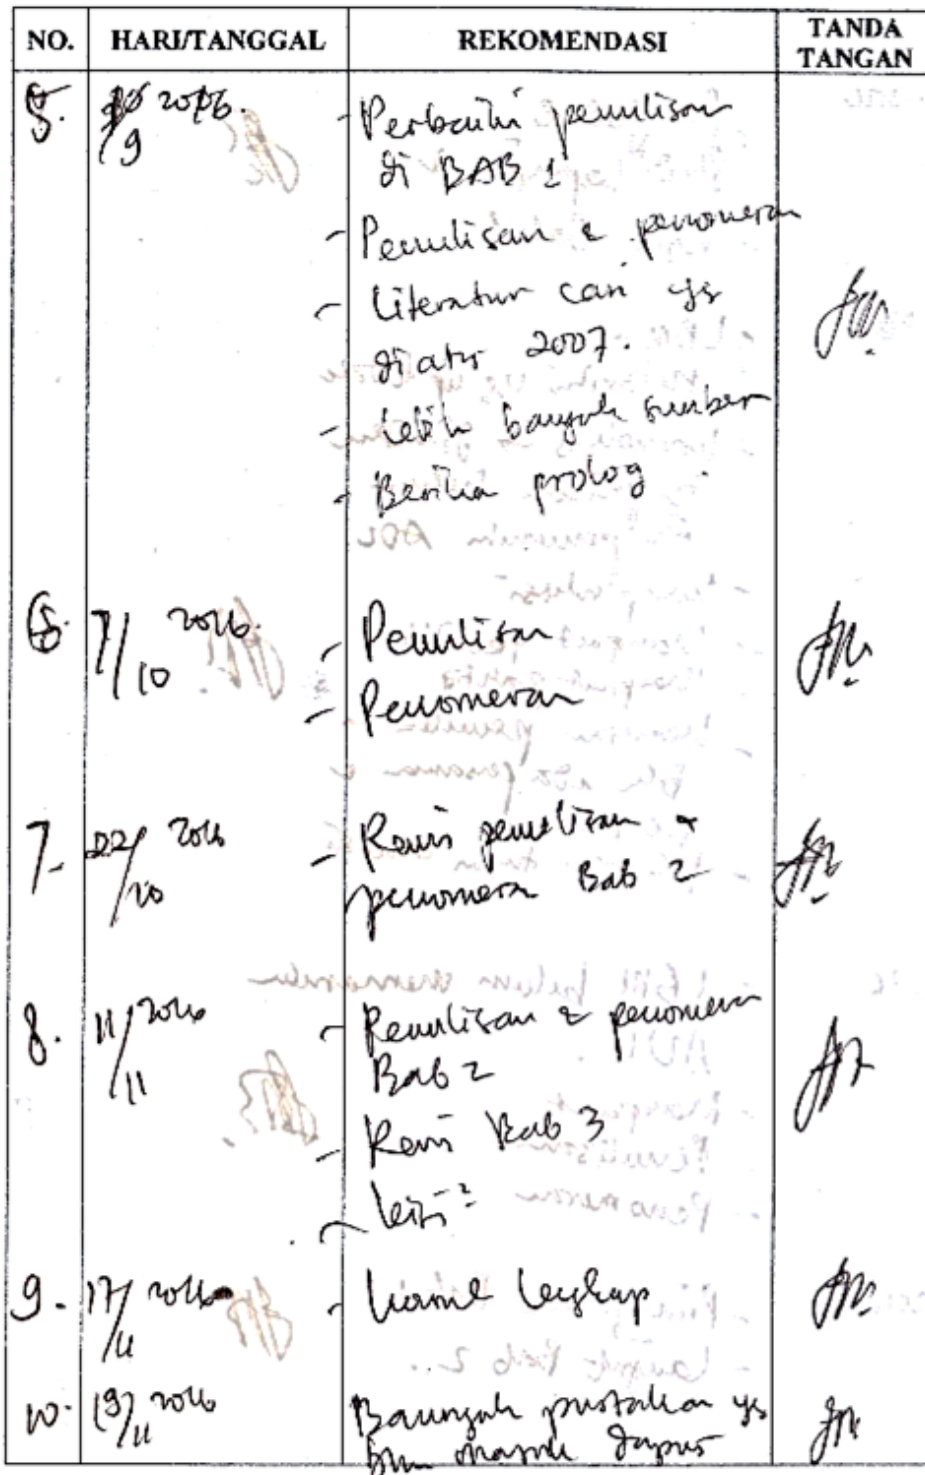 NO. HARI/TANGGAL REKOMENDASI TANDA TANGAN
5. 2016. - Perbaiki penulisan
9 di BAB 1
- Penulisan & penomeran
- Literatur cari yg
diatas 2007.
- Lebih banyak sumber
- Berikan prolog
6. 7/10 2016. - Penulisan
- Penomeran
7. 22/10 2016 - Revisi penulisan &
penomeran Bab 2
8. 11/11 2016 - Penulisan & penomeran
Bab 2
- Revisi Bab 3
-
9. 17/11 2016 - lengkap
10. 19/11 2016 Banyak pustaka yg
blm masuk dapus